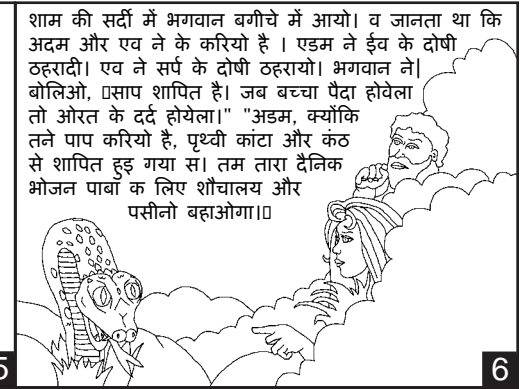 शाम की सर्दी में भगवान बगीचे में आयो। व जानता था कि
अदम और एव ने के करियो है । एडम ने ईव के दोषी
ठहरादी। एव ने सर्प के दोषी ठहरायो। भगवान ने|
बोलिओ, साप शापित है। जब बच्चा पैदा होवेला
तो ओरत के दर्द होयेला।" "अडम, क्योंकि
तने पाप करियो है, पृथ्वी कांटा और कंठ
से शापित हुइ गया स। तम तारा दैनिक
भोजन पाबां क लिए शौचालय और
पसीनो बहाओगा।
5
6